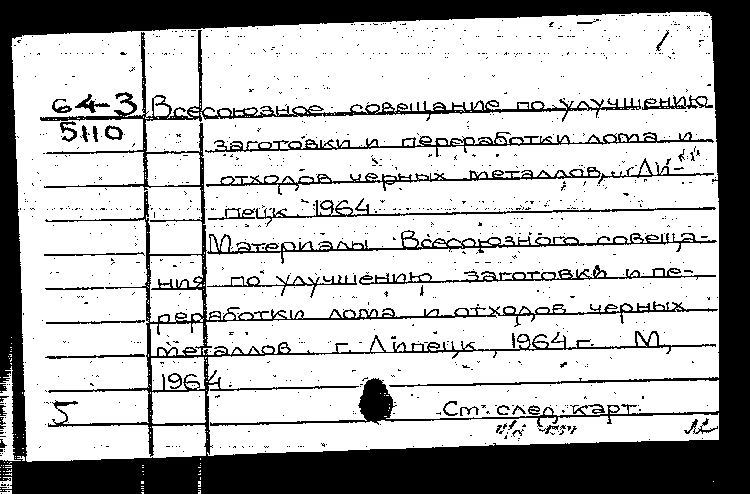 64-3 Всесоюзное совещание по улучшению
5110 заготовки и переработки лома и
отходов черных металлов, г. Ли-
пецк 1964.
Материалы Всесоюзного совеща-
ния по улучшению заготовки и пе-
реработки лома и отходов черных
металлов г. Липецк, 1964 г. М,
1964.
5 См. след. карт.